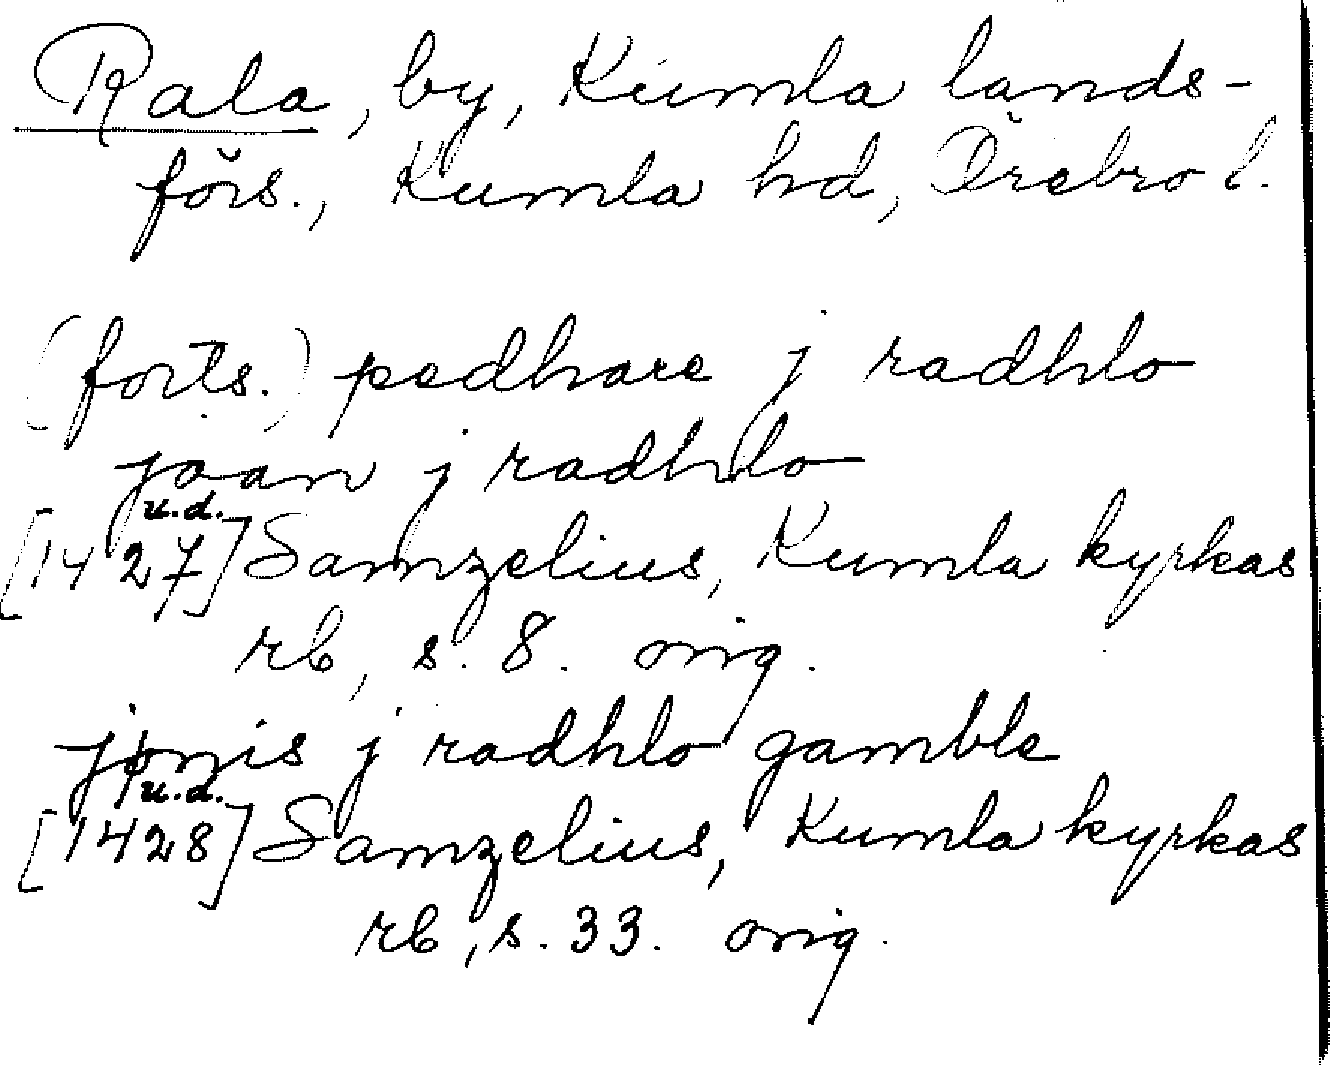 Rala, by, Kumla lands-
förs., Kumla hd, Örebro l.
(forts.) pedhare j radhlo
jaan j radhlo
u.d.
[1427] Samzelius, Kumla kyrkas
rb, s. 8. orig.
jönis j radhlo gamble
u.d.
[1428] Samzelius, Kumla kyrkas
rb, s. 33. orig.